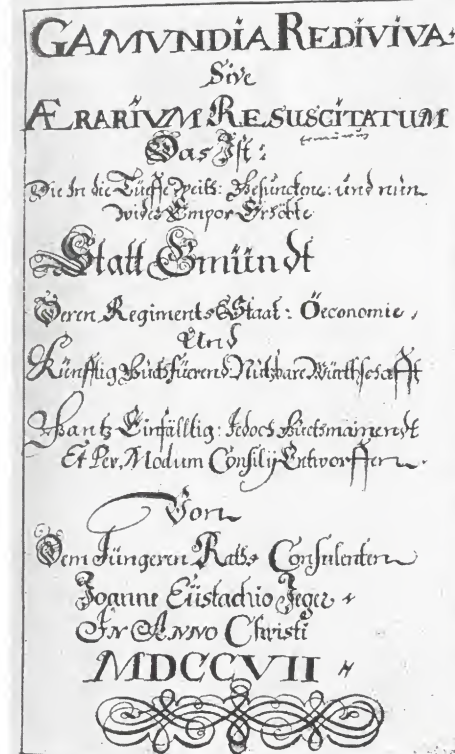 GAMVNDIA REDIVIVA
Sive
ÆRARIVM RESUSCITATUM
Das Ist:
Die In die Tüeffe Theils: Gesunckene: und nun
wider Empor Erhöbte
Statt Gmündt
Deren Regiments Staat: Öeconomie,
Und
Künfftig Guthfüerend Nutzbare Würthschafft
Gantz Einfälltig: Jedoch Guetsmainendt
Et Per Modum Consilij Entworffen
Von
Dem Jüngeren Raths Consulenten
Joanne Eüstachio Jeger
In Anno Christi
MDCCVII